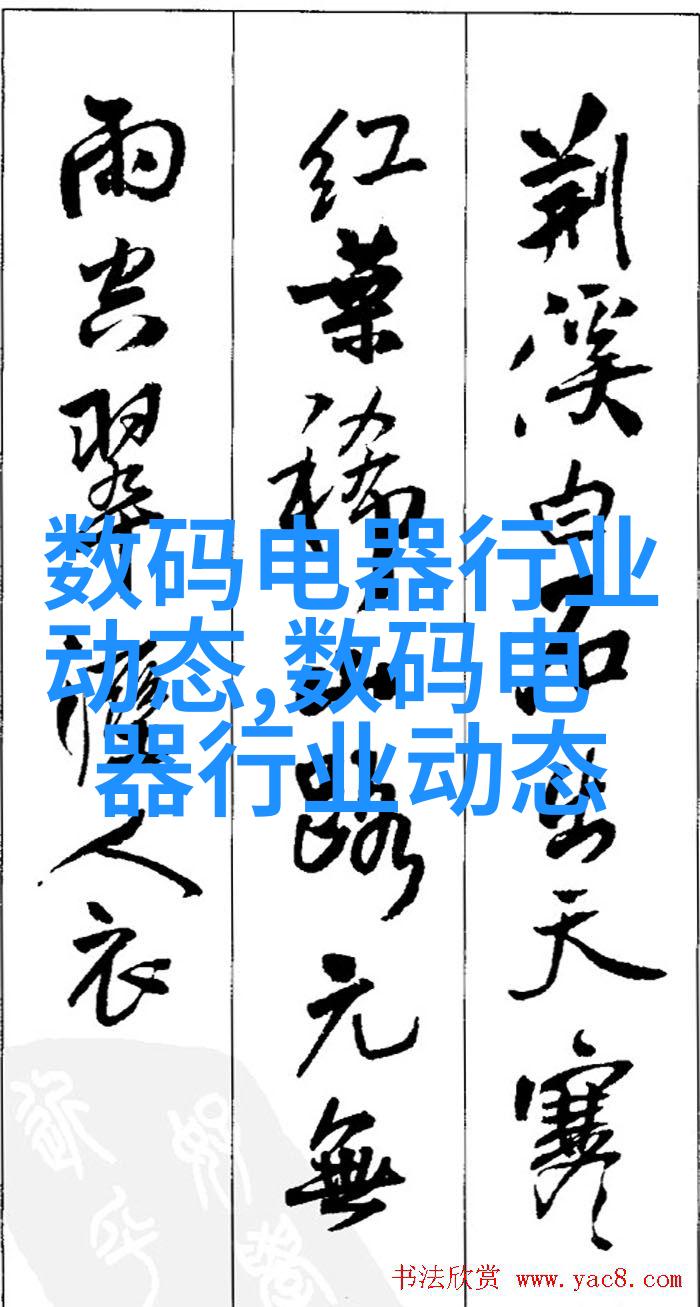 荆溪白石出天寒
红葉稀山路元無
雨空翠濕人衣
数码电器行业
动态,数码电
器行业动态
书法欣赏 www.yac8.com